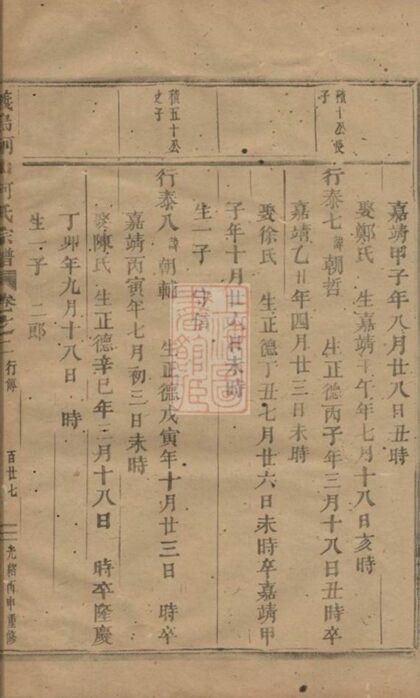 嘉靖甲子年八月廿八日
娶鄭氏 生嘉靖午年七月十八日亥時
積十公長子
行泰七諱朝哲 生正德丙子年三月十八日丑時卒
嘉靖乙丑年四月廿三日未時
娶徐氏 生正德丁丑七月廿六日未時卒嘉靖甲
子年十月廿六日未時
生一子
積五十公
史子
行泰八諱朝輔 生正德戊寅年十月廿三日 時卒
嘉靖丙寅年七月初三日未時
娶陳氏 生正德辛巳年三月十八日 時卒隆慶
丁卯年九月十八日 時
生一子 二郎
義烏 何氏宗譜 卷之二 行傳 百廿七 光緒丙申重修